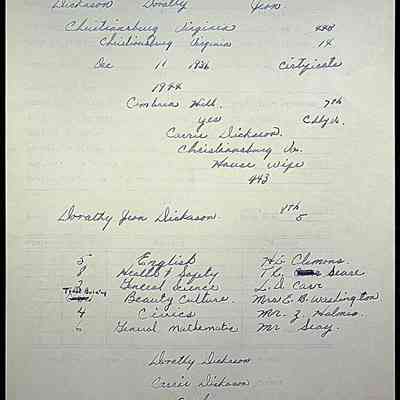 Dickason Dorothy Jean
Christiansburg Virginia 448
Christiansburg Virginia 14
Dec 11 1936 Certificate
1944
Cambria Hill 7th
yes
Carrie Dickason.
Christiansburg Va.
House wife
443
Dorothy Jean Dickason. 8th
5 English H.L. Clemons.
8 Health & Safety Sease
7 General Science L.D. Carr
Beauty Culture. Mrs E.B. Washington
4 Civics Mr. Z. Holmes.
6 General Mathematic Mr Seay.
Dorothy Dickason
Carrie Dickason